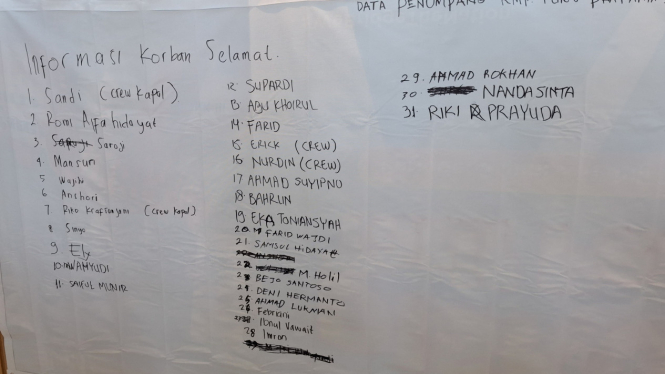 DATA PENUMPANG KMP TUNU PRATAMA
Informasi Korban Selamat.
1. Sandi (crew kapal)
2 Romi Alfa hidayat
3. Saroji
4. Mansun
5 Wajihi
6 Anshori
7. Riko Krafsanjani (crew kapal)
8 Sinyo
9 Eka
10. WAHYUDI
11. SAIFUL MUNIR
12. SUPARDI
13 ABU KHOIRUL
14. FARID
15 ERICK (CREW)
16 NURDIN (CREW)
17 AHMAD SUYIPNO
18. BAHRUN
19 EKA TONIANSYAH
20. M FARID WAJDI
21. SAMSUL HIDAYAT
22 M Holil
23 BEJO SANTOSO
24 DENI HERMANTO
25 AHMAD LUKMAN
26 Febriani
27 Ibnul Vawait
28 Imron
29. AHMAD ROKHAN
30 NANDA SINTA
31 RIKI PRAYUDA